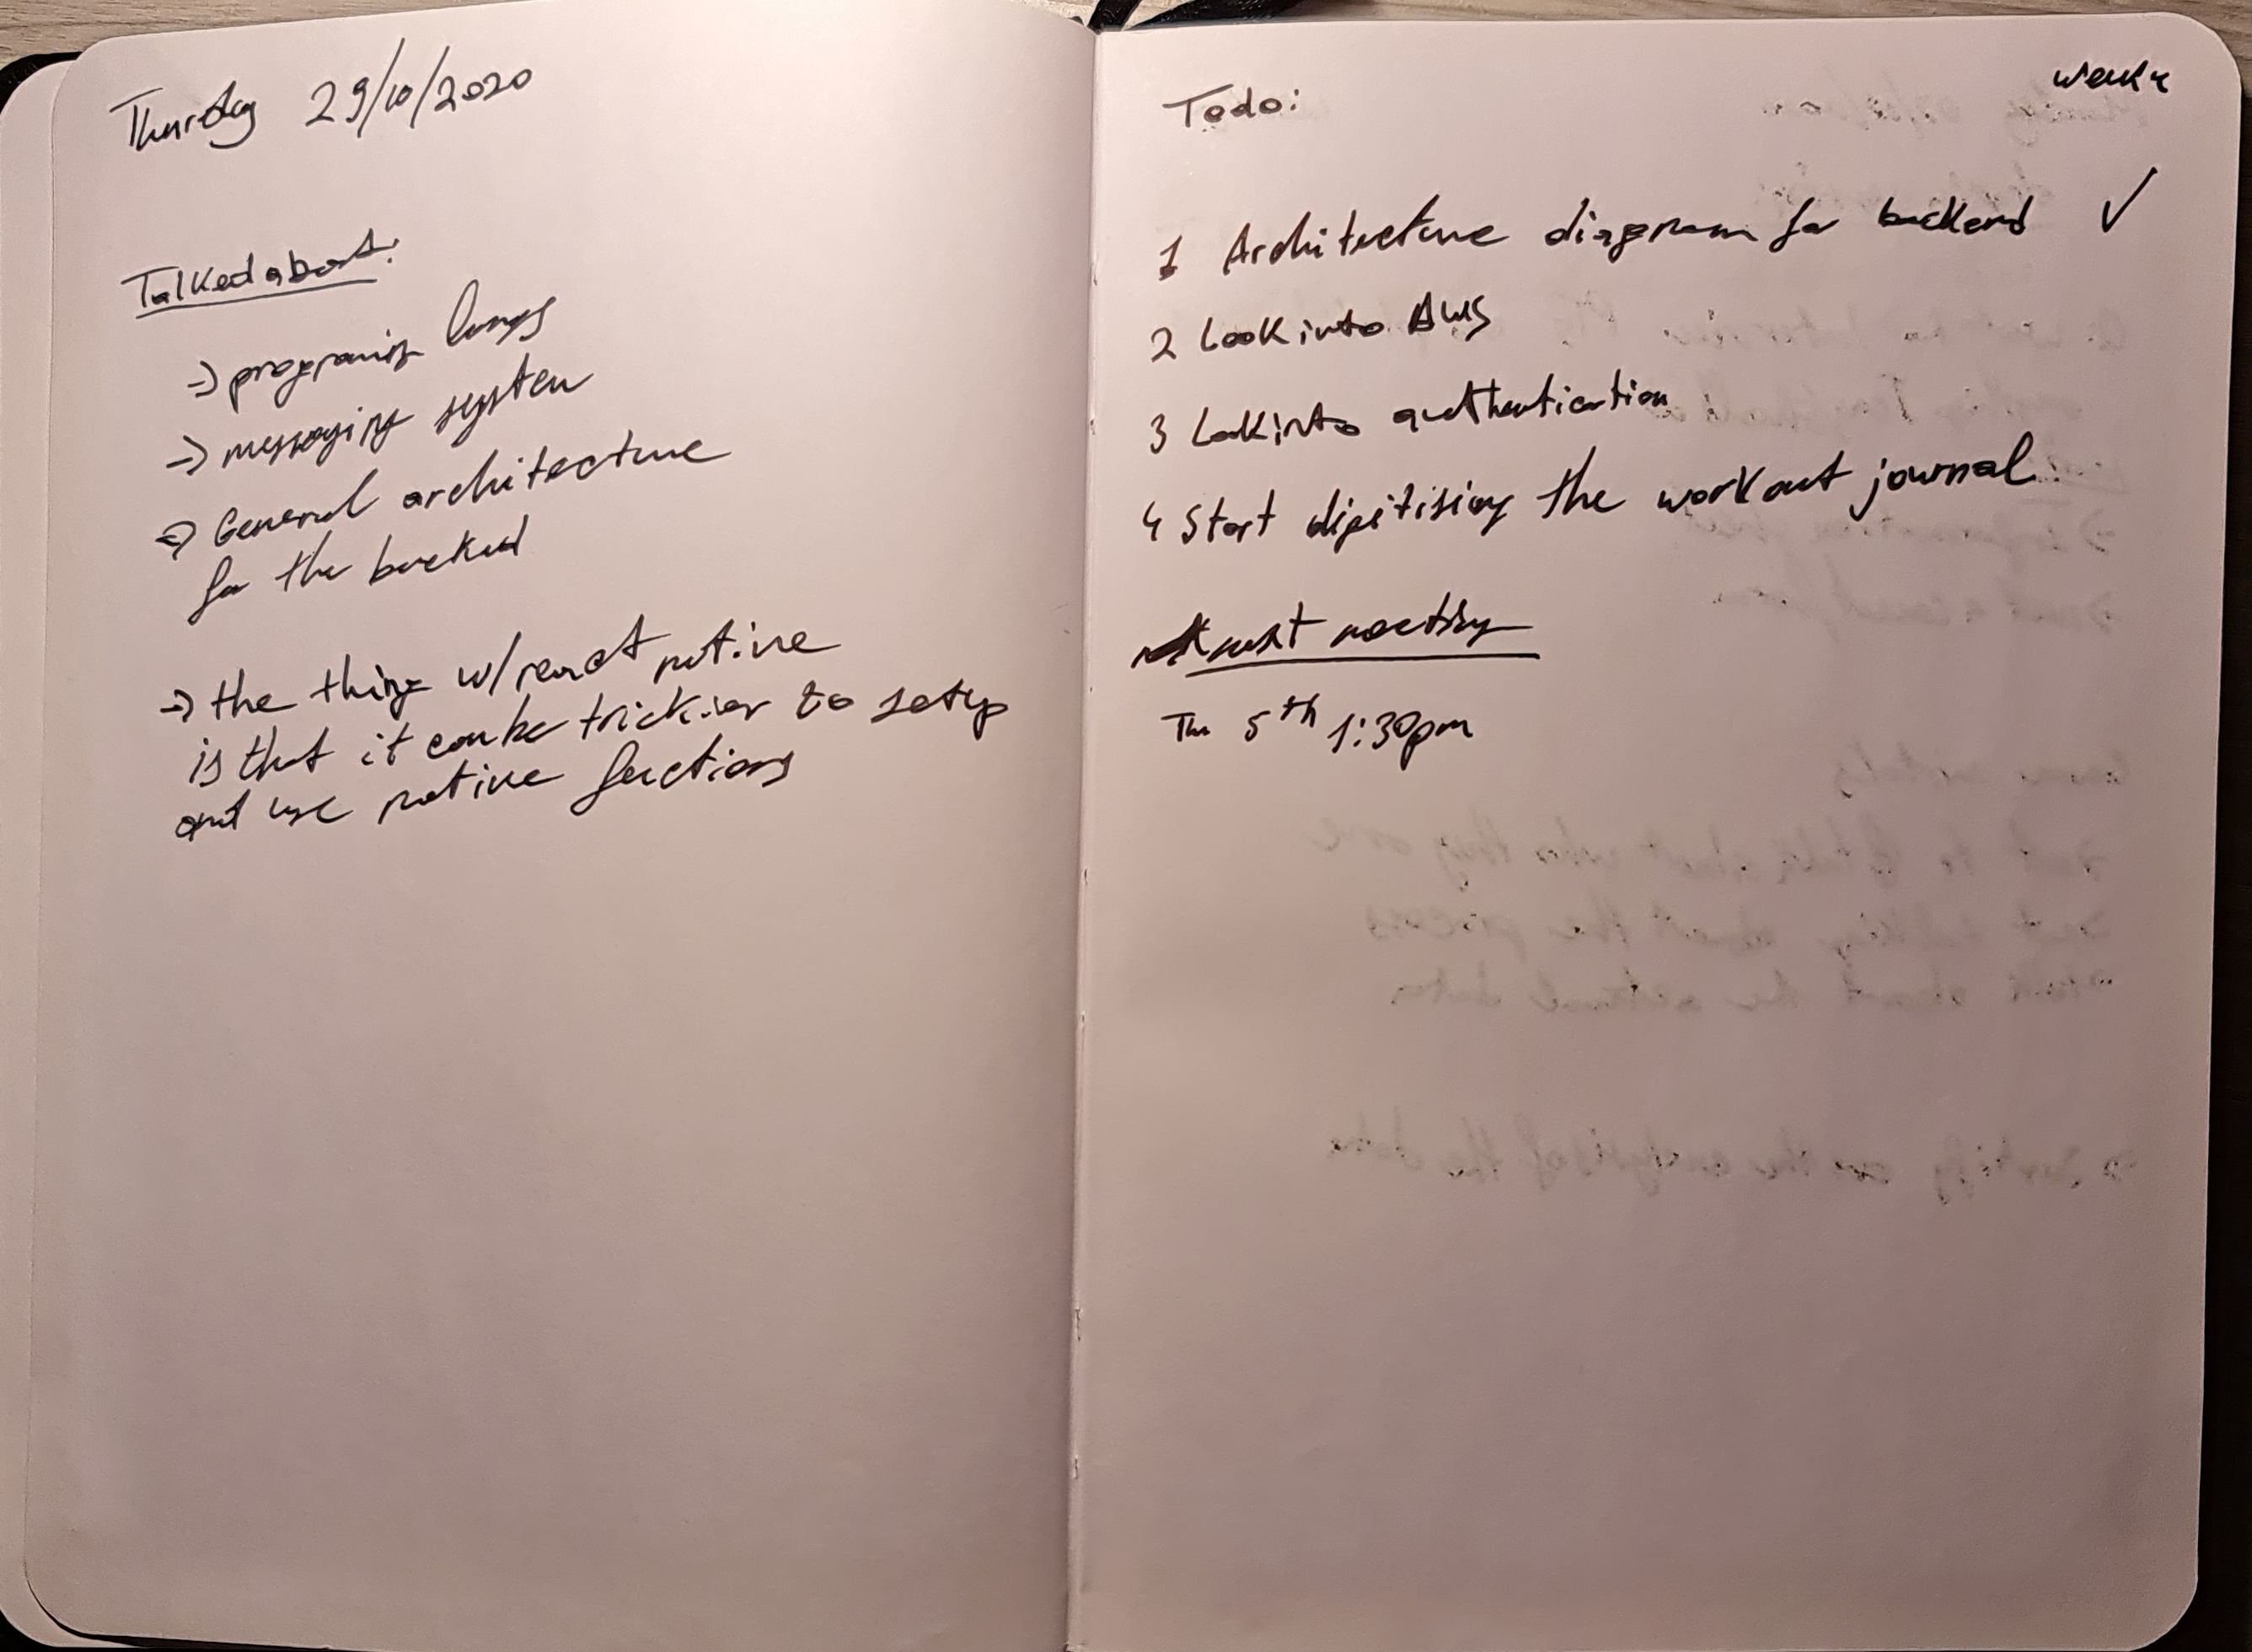 Thursday 29/10/2020
Talked about:
→ programing langs
→ messaging system
→ General architecture
for the backend
→ the thing w/ react native
is that it can be trickier to setup
and use native functions
week 4
Todo:
1 Architecture diagram for backend ✓
2 Look into AWS
3 Look into authentication
4 Start digitising the workout journal
next meeting
Thu 5th 1:30pm